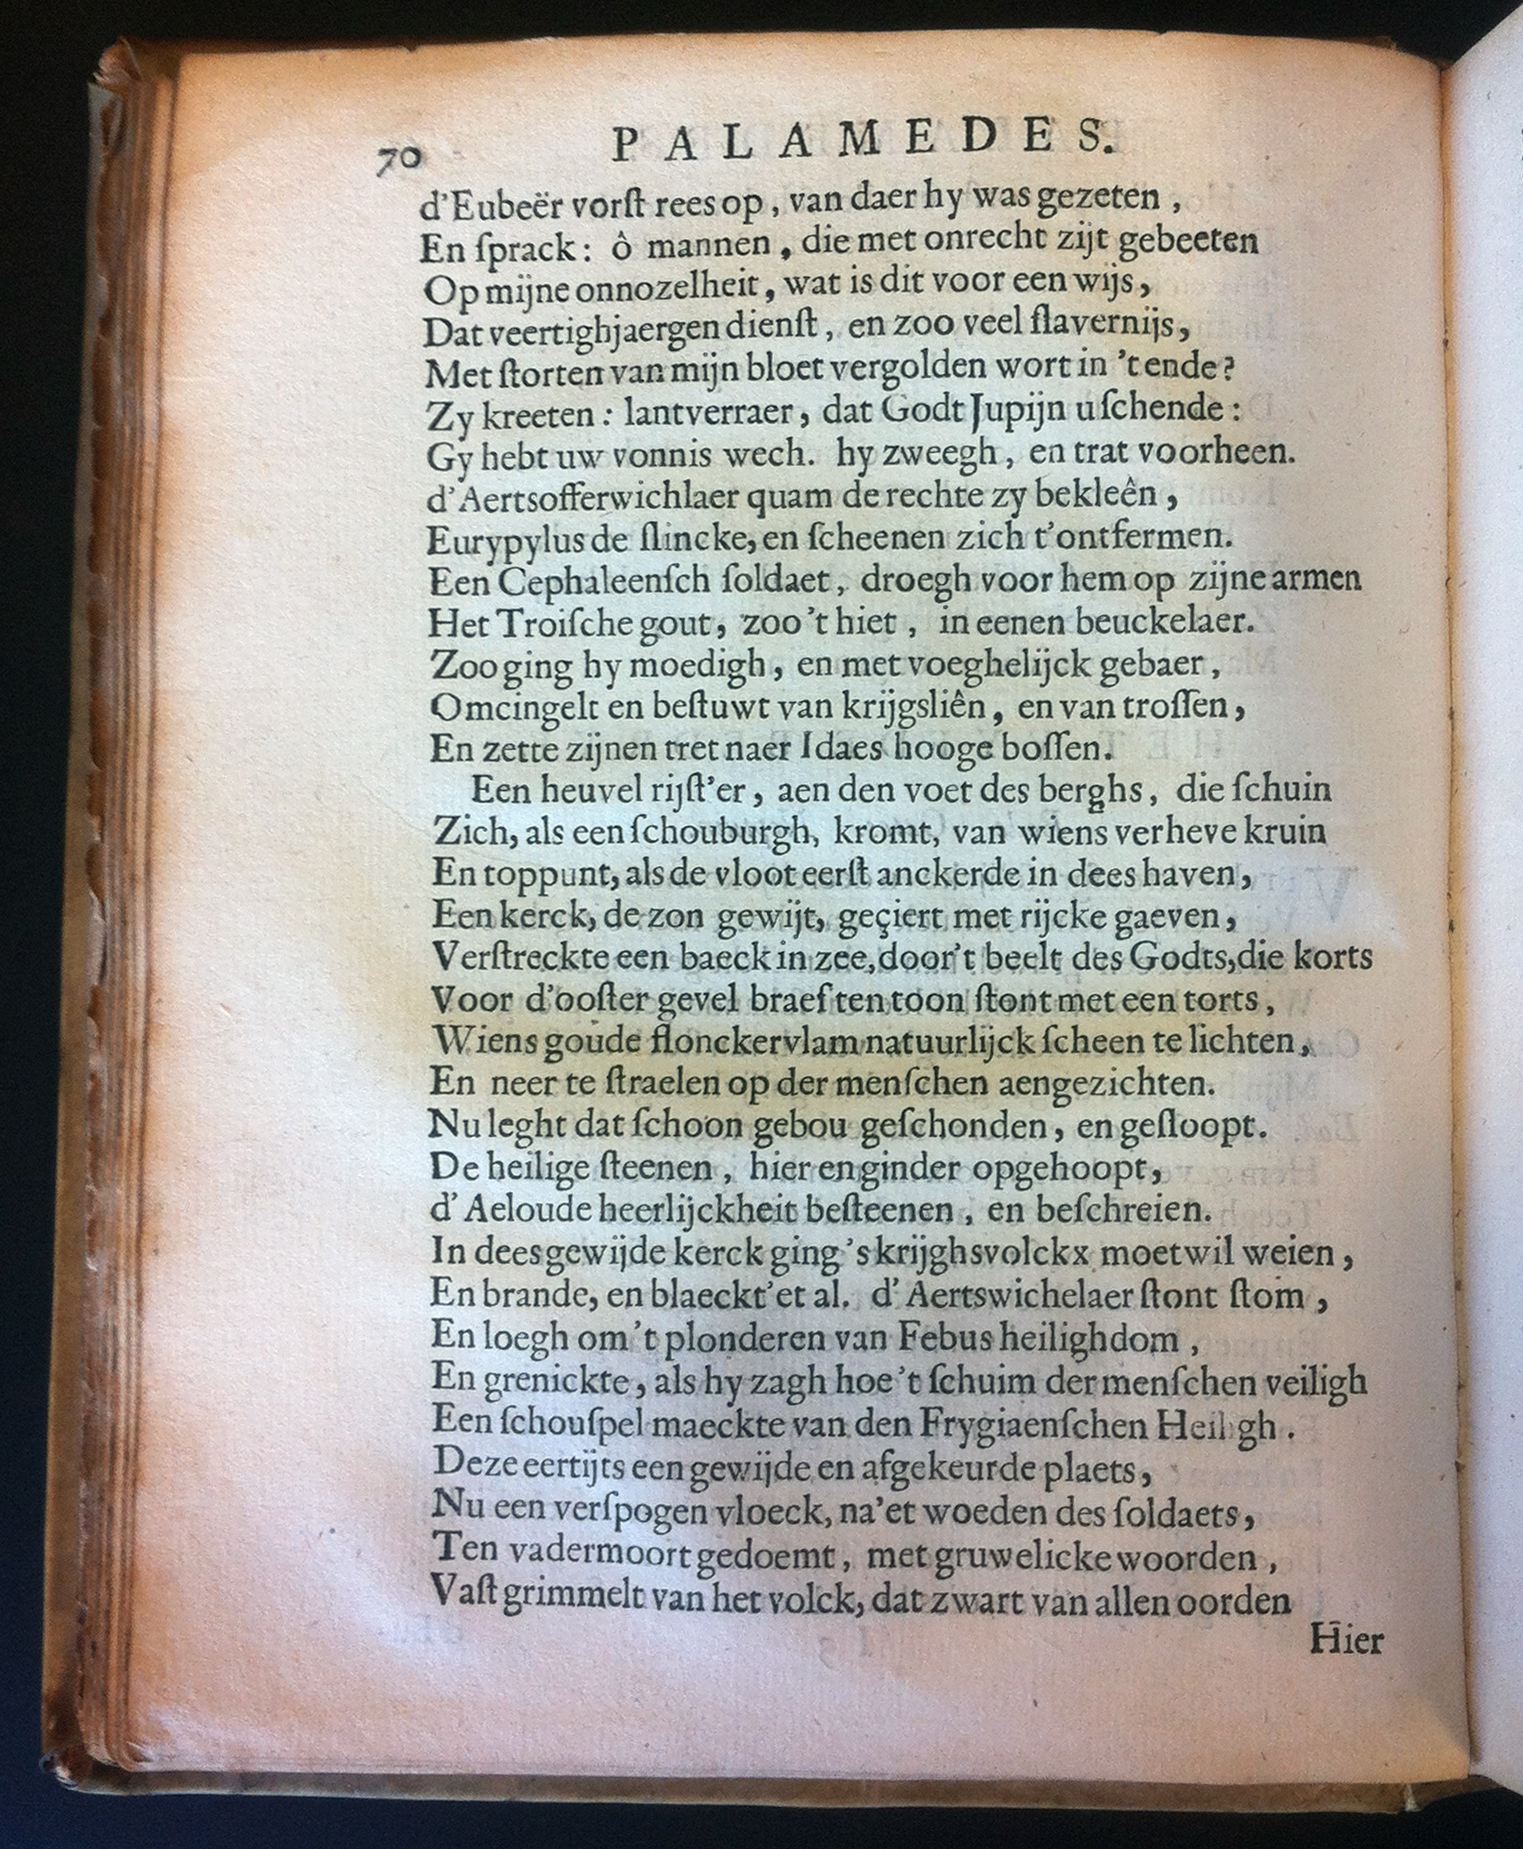 70 PALAMEDES.
d'Eubeër vorſt rees op, van daer hy was gezeten,
En ſprack: ô mannen, die met onrecht zijt gebeeten
Op mijne onnozelheit, wat is dit voor een wijs,
Dat veertighjaergen dienſt, en zoo veel ſlavernijs,
Met ſtorten van mijn bloet vergolden wort in 't ende?
Zy kreeten: lantverraer, dat Godt Jupijn u ſchende:
Gy hebt uw vonnis wech. hy zweegh, en trat voorheen.
d'Aertsofferwichlaer quam de rechte zy bekleên,
Eurypylus de ſlincke, en ſcheenen zich t'ontfermen.
Een Cephaleenſch ſoldaet, droegh voor hem op zijne armen
Het Troiſche gout, zoo 't hiet, in eenen beuckelaer.
Zoo ging hy moedigh, en met voeghelijck gebaer,
Omcingelt en beſtuwt van krijgsliên, en van troſſen,
En zette zijnen tret naer Idaes hooge boſſen.
Een heuvel rijſt'er, aen den voet des berghs, die ſchuin
Zich, als een ſchouburgh, kromt, van wiens verheve kruin
En toppunt, als de vloot eerſt anckerde in dees haven,
Een kerck, de zon gewijt, geçiert met rijcke gaeven,
Verſtreckte een baeck in zee, door't beelt des Godts, die korts
Voor d'ooſter gevel braef ten toon ſtont met een torts,
Wiens goude flonckervlam natuurlijck ſcheen te lichten,
En neer te ſtraelen op der menſchen aengezichten.
Nu leght dat ſchoon gebou geſchonden, en geſloopt.
De heilige ſteenen, hier en ginder opgehoopt,
d'Aeloude heerlijckheit beſteenen, en beſchreien.
In dees gewijde kerck ging 's krijghsvolckx moetwil weien,
En brande, en blaeckt'et al. d'Aertswichelaer ſtont ſtom,
En loegh om 't plonderen van Febus heilighdom,
En grenickte, als hy zagh hoe 't ſchuim der menſchen veiligh
Een ſchouſpel maeckte van den Frygiaenſchen Heiligh.
Deze eertijts een gewijde en afgekeurde plaets,
Nu een verſpogen vloeck, na'et woeden des ſoldaets,
Ten vadermoort gedoemt, met gruwelicke woorden,
Vaſt grimmelt van het volck, dat zwart van allen oorden
Hier